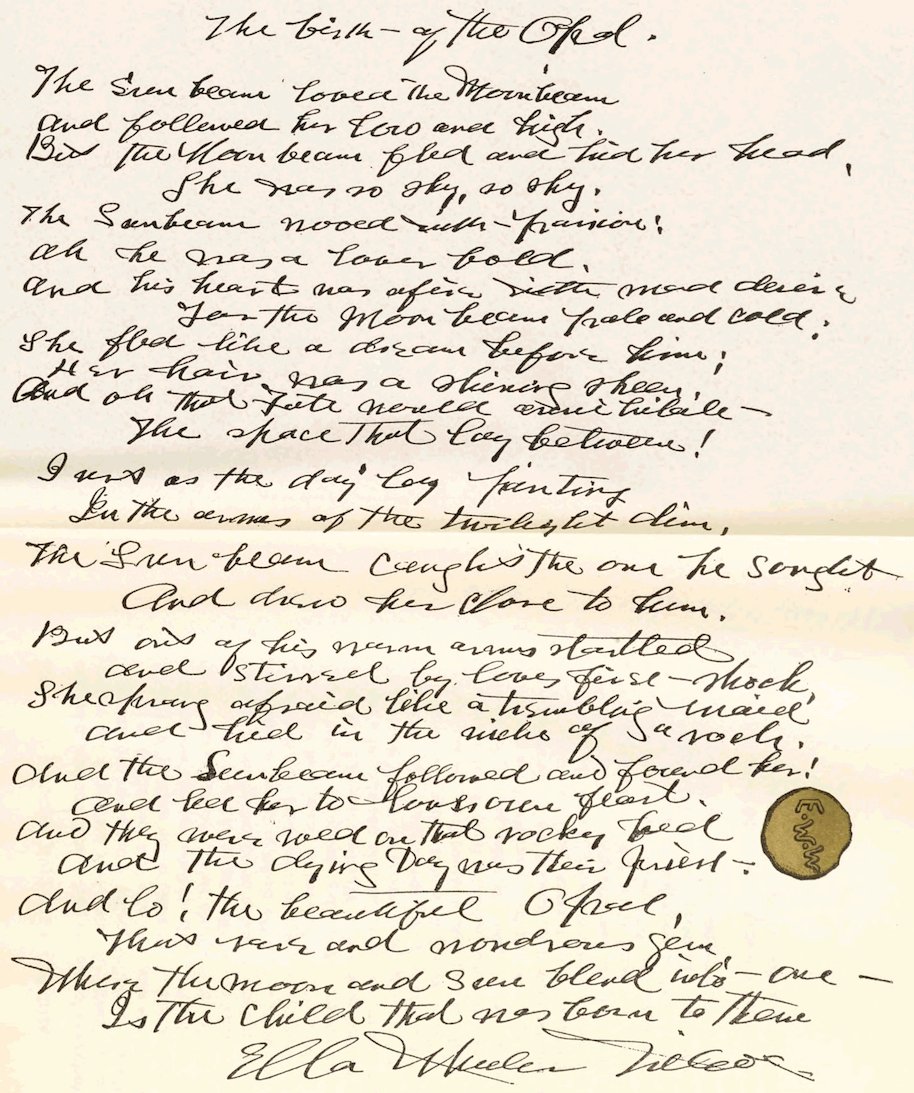 The birth of the Opal.
The Sunbeam loved the Moonbeam
And followed her low and high.
But the Moonbeam fled and hid her head,
She was so shy, so shy.
The Sunbeam wooed with passion;
Ah he was a lover bold.
And his heart was afire with mad desire
For the Moonbeam pale and cold.
She fled like a dream before him;
Her hair was a shining sheen,
And oh that Fate would annihilate
The space that lay between!
Just as the day lay panting
In the arms of the twilight dim,
The Sunbeam caught the one he sought
And drew her close to him.
But out of his warm arms startled
And stirred by love's first shock,
She sprang afraid like a trembling maid
And hid in the niche of a rock.
And the Sunbeam followed and found her!
And led her to love's own feast.
And they were wed on that rocky bed
And the dying Day was their priest.
And lo! the beautiful Opal,
That rare and wondrous gem,
Where the moon and sun blend into one
Is the child that was born to them
Ella Wheeler Wilcox
E.W.W